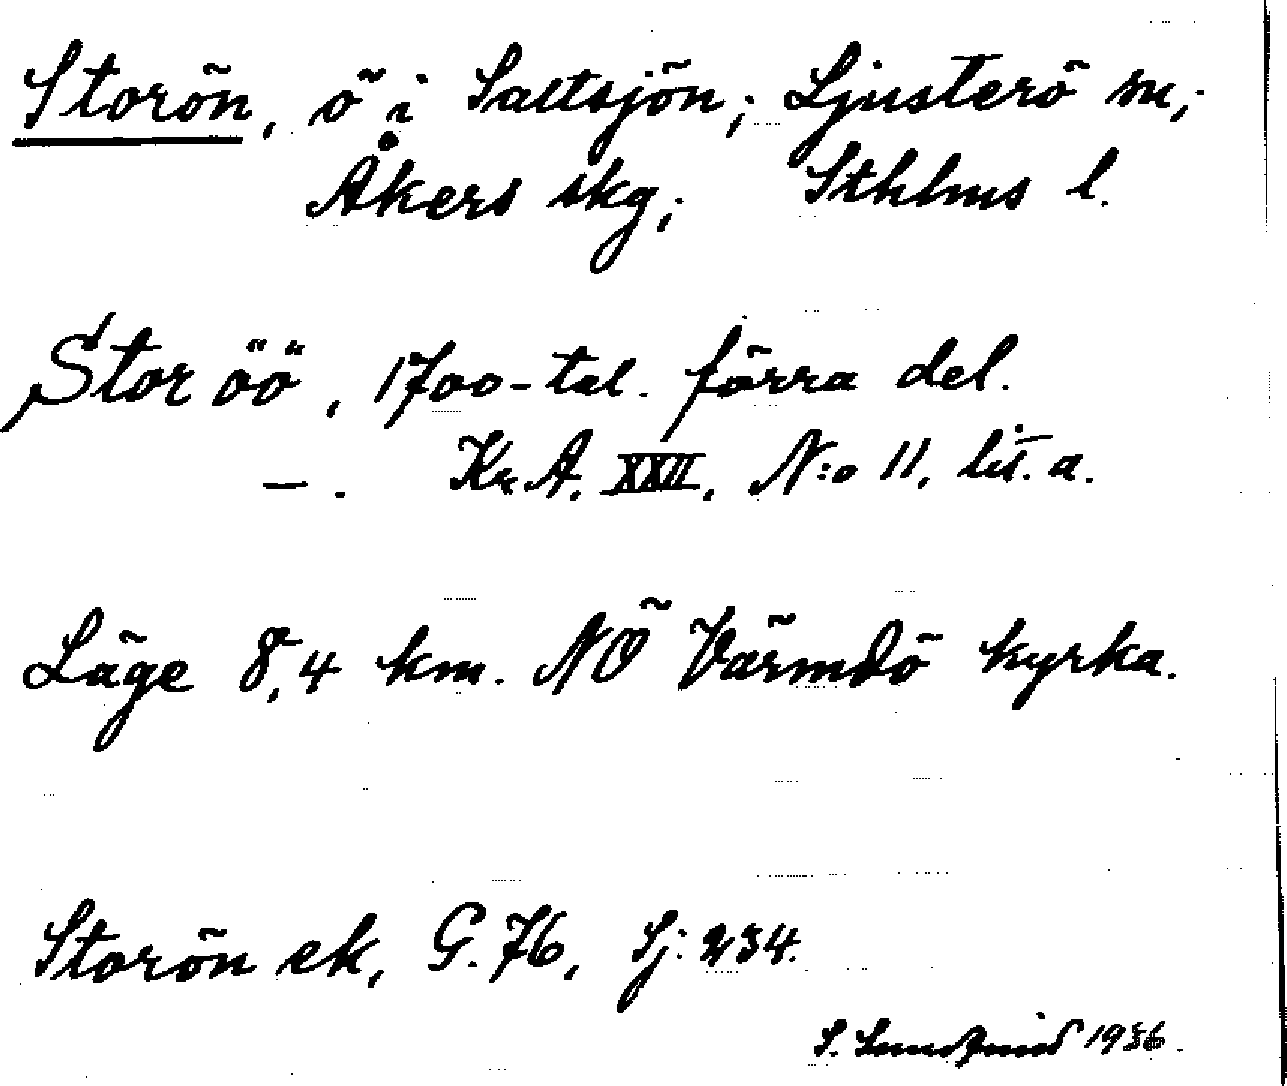 Storön, ö i Saltsjön; Ljusterö sn;
Åkers skg; Sthlms l.
Stor öö, 1700-tal. förra del.
—. Kr. A. XXII, N:o 11, lit. a.
Läge 8,4 km. NÖ Värmdö kyrka.
Storön ek, G. 76, Sj: 234.
S. 1936.